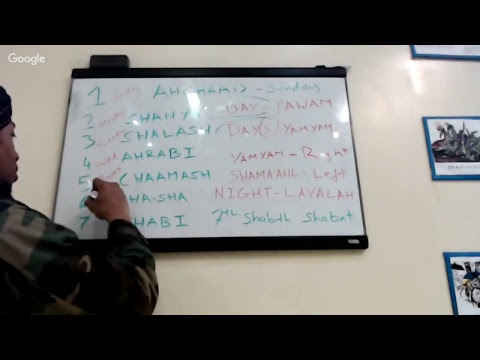 Google
1 AHCHARID - Sunday
2 SHANY DAY - YAWAM
3 SHALASH DAY(S) - YAMYAM
4 AHRABI YAMYAM - Right
5 CHAAMASH SHAMAAHL - Left
HA-SHA NIGHT-LAYALAH
7 HABI 7th Shabth Shabat